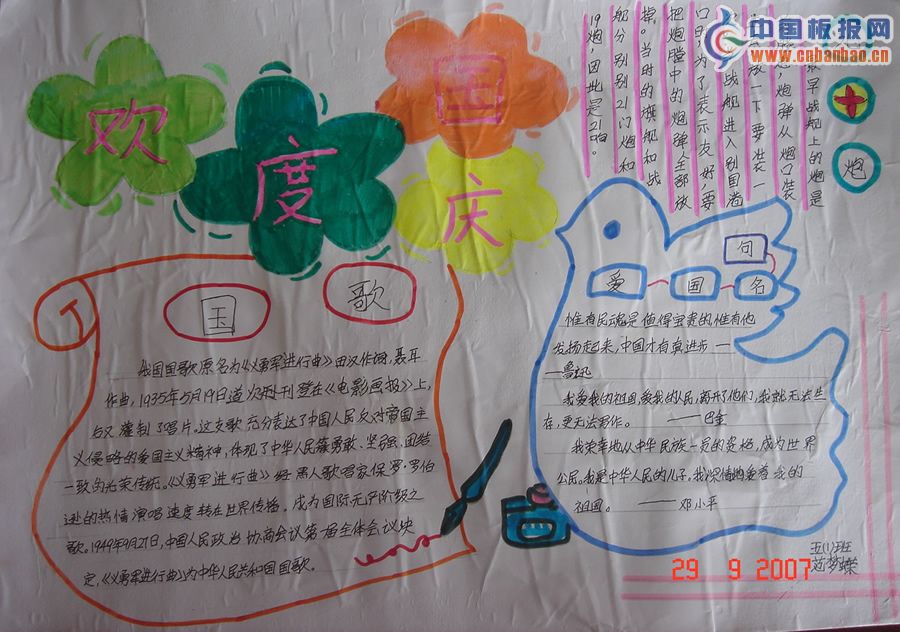 欢度国庆
中国板报网
www.cnbanbao.cn
炮
早战舰上的炮是
炮弹从炮口装
一下要装一
战舰进入别国港
口时,为了表示友好,要
把炮膛中的炮弹全部放
掉。当时的旗舰和战
舰分别别21门炮和
19炮,因此是21响。
国歌
我国国歌原名为《义勇军进行曲》田汉作词,聂耳
作曲,1935年5月19日首次刊登在《电影画报》上,
后又灌制了唱片,这支歌充分表达了中国人民反对帝国主
义侵略的爱国主义精神,体现了中华人民族勇敢、坚强、团结
一致的光荣传统。《义勇军进行曲》经黑人歌唱家保罗·罗伯
逊的热情演唱速度转在世界传播。成为国际无产阶级之
歌。1949年9月27日,中国人民政治协商会议第一届全体会议决
定,《义勇军进行曲》为中华人民共和国国歌。
爱国名句
惟有民魂是值得宝贵的,惟有他
发扬起来,中国才有真进步——
——鲁迅
我爱我的祖国,爱我的人民,离开了他们,我就无法生
存,更无法写作。——巴金
我荣幸地从中华民族一员的资格,成为世界
公民。我是中华人民的儿子,我深情地爱着我的
祖国。——邓小平
五(1)班
范梦蝶
29 9 2007